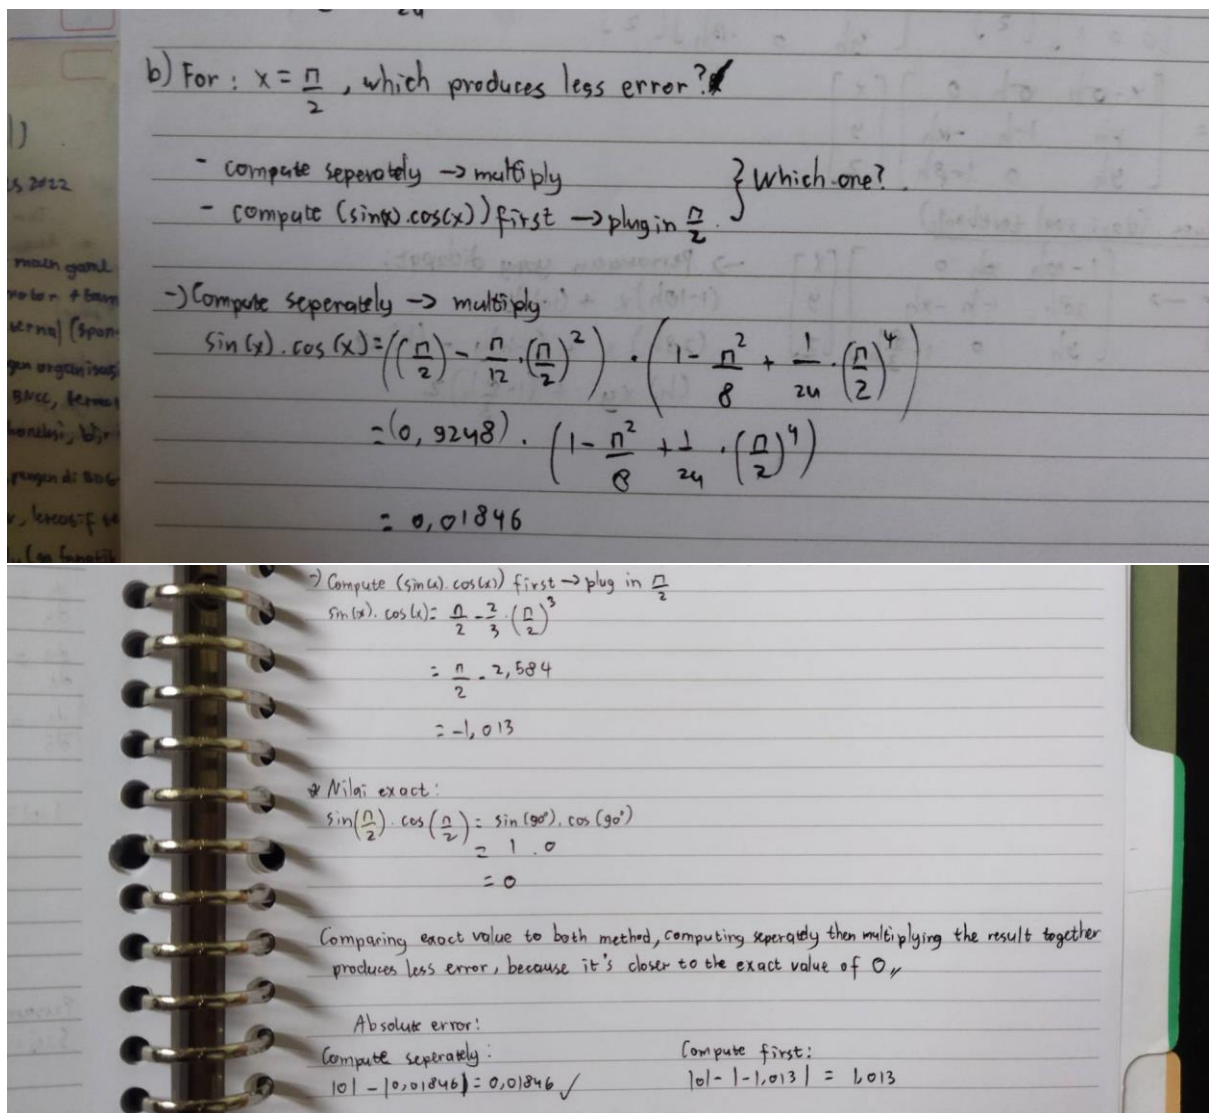 24
b) For : x = π/2 , which produces less error?
)
s 2022
- compute seperately → multiply } Which one?
- compute (sin(x).cos(x)) first → plug in π/2.
main game
-) Compute seperately → multiply
sin(x) . cos(x) = ((π/2) - π/12 . (π/2)^2) . (1 - π^2/8 + 1/24 . (π/2)^4)
= (0,9248) . (1 - π^2/8 + 1/24 . (π/2)^4)
= 0,01846
-) Compute (sin(x). cos(x)) first → plug in π/2
sin(x). cos(x) = π/2 - 2/3 . (π/2)^3
= π/2 - 2,584
= -1,013
* Nilai exact:
sin(π/2) . cos(π/2) = sin(90°). cos(90°)
= 1 . 0
= 0
Comparing exact value to both method, computing seperately then multiplying the result together
produces less error, because it's closer to the exact value of 0,,
Absolute error:
Compute seperately : Compute first:
|0| - |0,01846| = 0,01846 ✓ |0| - |-1,013| = 1,013